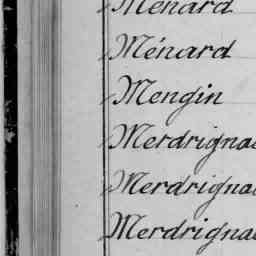 Ménard
Ménard
Mengin
Merdrignac
Merdrignac
Merdrignac